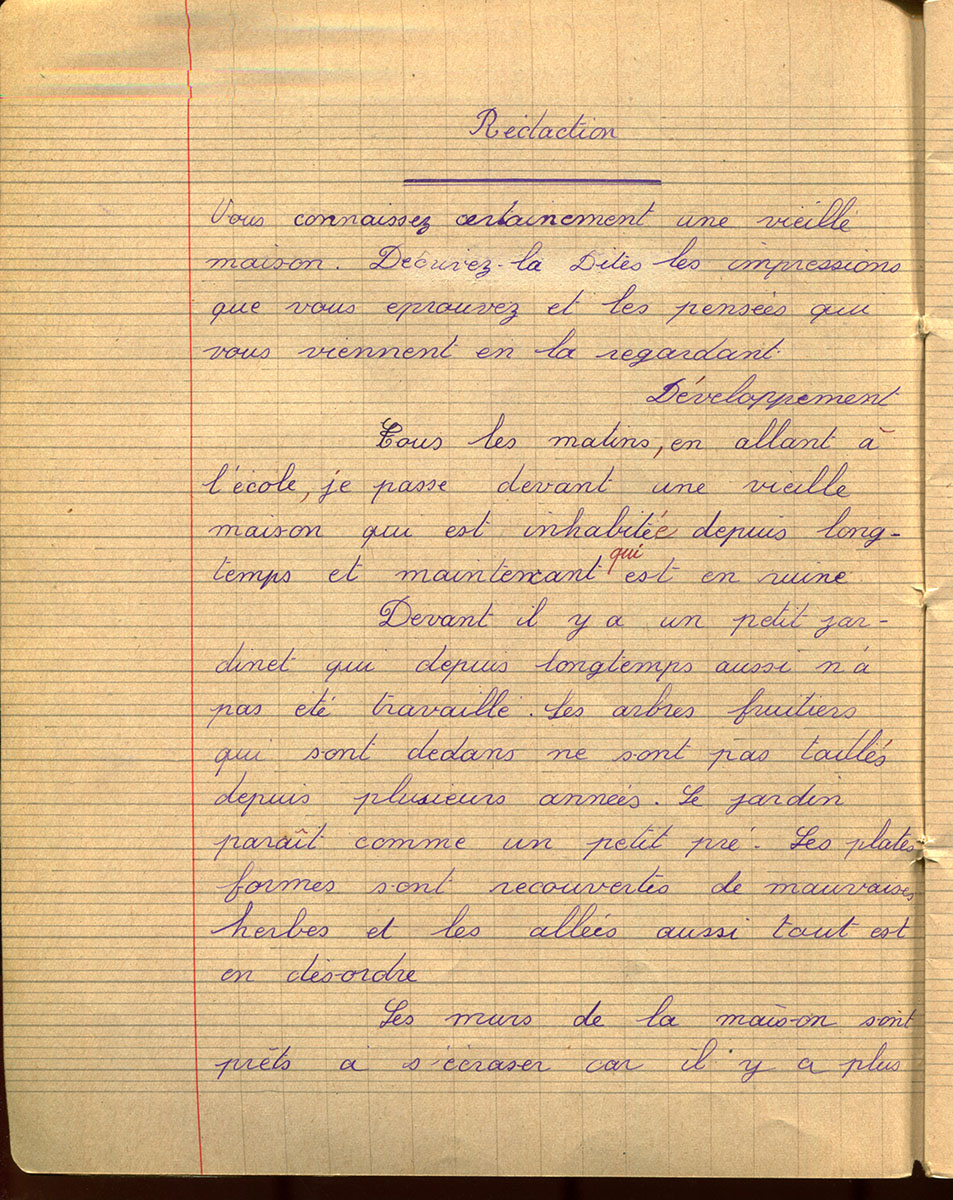 Rédaction
Vous connaissez certainement une vieille
maison. Décrivez-la Dites les impressions
que vous eprouvez et les pensées qui
vous viennent en la regardant.
Développement
Tous les matins, en allant à
l'école, je passe devant une vieille
maison qui est inhabitée depuis long-
temps et maintenant qui est en ruine
Devant il y a un petit jar-
dinet qui depuis longtemps aussi n'a
pas été travaillé. Les arbres fruitiers
qui sont dedans ne sont pas taillés
depuis plusieurs années. Le jardin
paraît comme un petit pré. Les plates
formes sont recouvertes de mauvaises
herbes et les allées aussi tout est
en désordre
Les murs de la maison sont
prêts a s'écraser car il y a plus